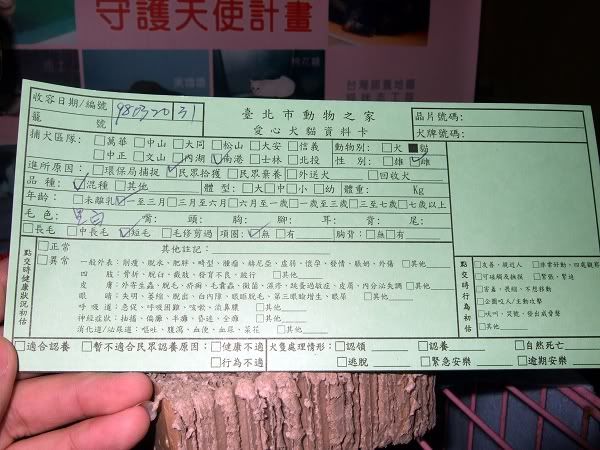 守護天使計畫
桃花貓
台灣認養地圖
收容日期/編號 980320 31
籠 號
臺北市動物之家
愛心犬貓資料卡
晶片號碼:
犬牌號碼:
捕犬區隊: □萬華 □中山 □大同 □松山 □大安 □信義 動物別: □犬 ■貓
□中正 □文山 □內湖 ☑南港 □士林 □北投 性 別: □雄 ☑雌
進所原因: □環保局捕捉 ☑民眾拾獲 □民眾棄養 □外送犬 □回收犬
品 種: ☑混種 □其他 體 型: □大 □中 □小 □幼 體重: Kg
年齡: □未離乳 ☑一至三月 □三月至六月 □六月至一歲 □一歲至三歲 □三至七歲 □七歲以上
毛 色: 黑白 嘴: 頭: 胸: 腳: 耳: 背: 尾:
□長毛 □中長毛 ☑短毛 □毛修剪過 項圈: ☑無 □有 胸背: □無 □有
點交時健康狀況初估
□正常 其他註記:
□異常 一般外表: 削瘦、脫水、肥胖、畸型、腫瘤、赫尼亞、虛弱、懷孕、發情、脹奶、外傷 □其他
四 肢: 骨折、脫臼、截肢、發育不良、跛行 □其他
皮 膚: 外寄生蟲、脫毛、疥癬、毛囊蟲、黴菌、濕疹、跳蚤過敏症、皮屑、內分泌失調 □其他
眼 睛: 失明、萎縮、脫出、白內障、眼瞼脫毛、第三眼瞼增生、眼屎 □其他
呼 吸 道: 急促、呼吸困難、咳嗽、流鼻膿 □其他
神經症狀: 抽搐、偏癱、半癱、昏迷、全癱 □其他
消化道/泌尿道: 嘔吐、腹瀉、血便、血尿、菜花 □其他
點交時行為初估
□友善、親近人 □非常好動、四處觀察
□可碰觸及撫摸 □緊張、緊迫
□害羞、畏縮、不想移動
□公開咬人/主動攻擊
□吠叫、哭號、發出威脅聲
□其他
□適合認養 □暫不適合民眾認養原因: □健康不適
□行為不適
犬隻處理情形: □認領 □認養 □自然死亡
□逃脫 □緊急安樂 □逾期安樂